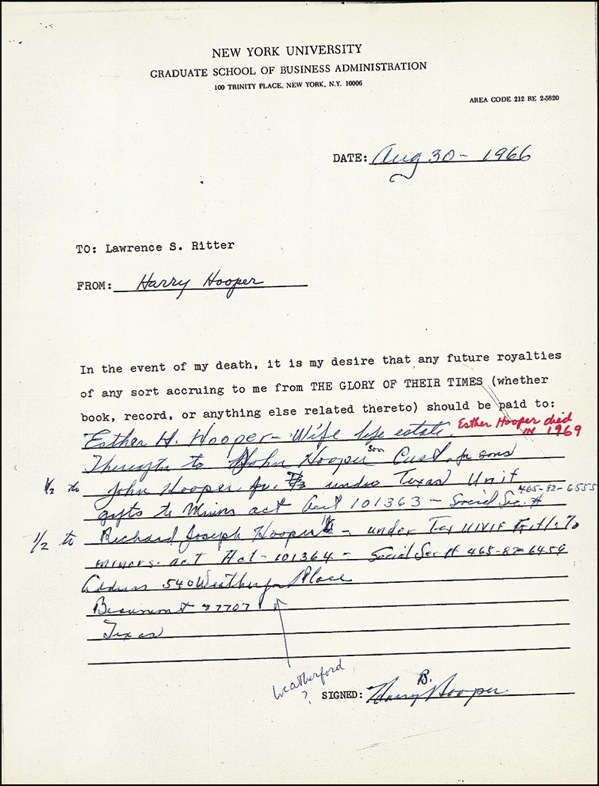 NEW YORK UNIVERSITY
GRADUATE SCHOOL OF BUSINESS ADMINISTRATION
100 TRINITY PLACE, NEW YORK, N.Y. 10006
AREA CODE 212 RE 2-5820
DATE: Aug 30 - 1966
TO: Lawrence S. Ritter
FROM: Harry Hooper
In the event of my death, it is my desire that any future royalties
of any sort accruing to me from THE GLORY OF THEIR TIMES (whether
book, record, or anything else related thereto) should be paid to:
Esther H. Hooper - Wife life estate Esther Hooper died IN 1969
Thereafter to John Hooper son Cust. for sons
1/2 to John Hooper, Jr. under Texas Unif
gifts to Minors act Acct 101363 - Social Sec. # 465-82-6555
1/2 to Richard Joseph Hooper - under Tex Unif Gifts To
minors act Act - 101364 - Social Sec # 465-82-6456
Address 540 Weatherfor Place
Beaumont 77707
Texas
Weatherford
?
SIGNED: Harry B. Hooper